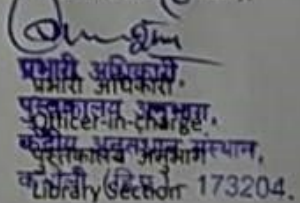 प्रभारी अधिकारी.
प्रभारी अधिकारी.
पुस्तकालय अनुभाग,
Officer-in-charge,
केंद्रीय अनुसंधान संस्थान,
पुस्तकालय अनुभाग
Library Section 173204.